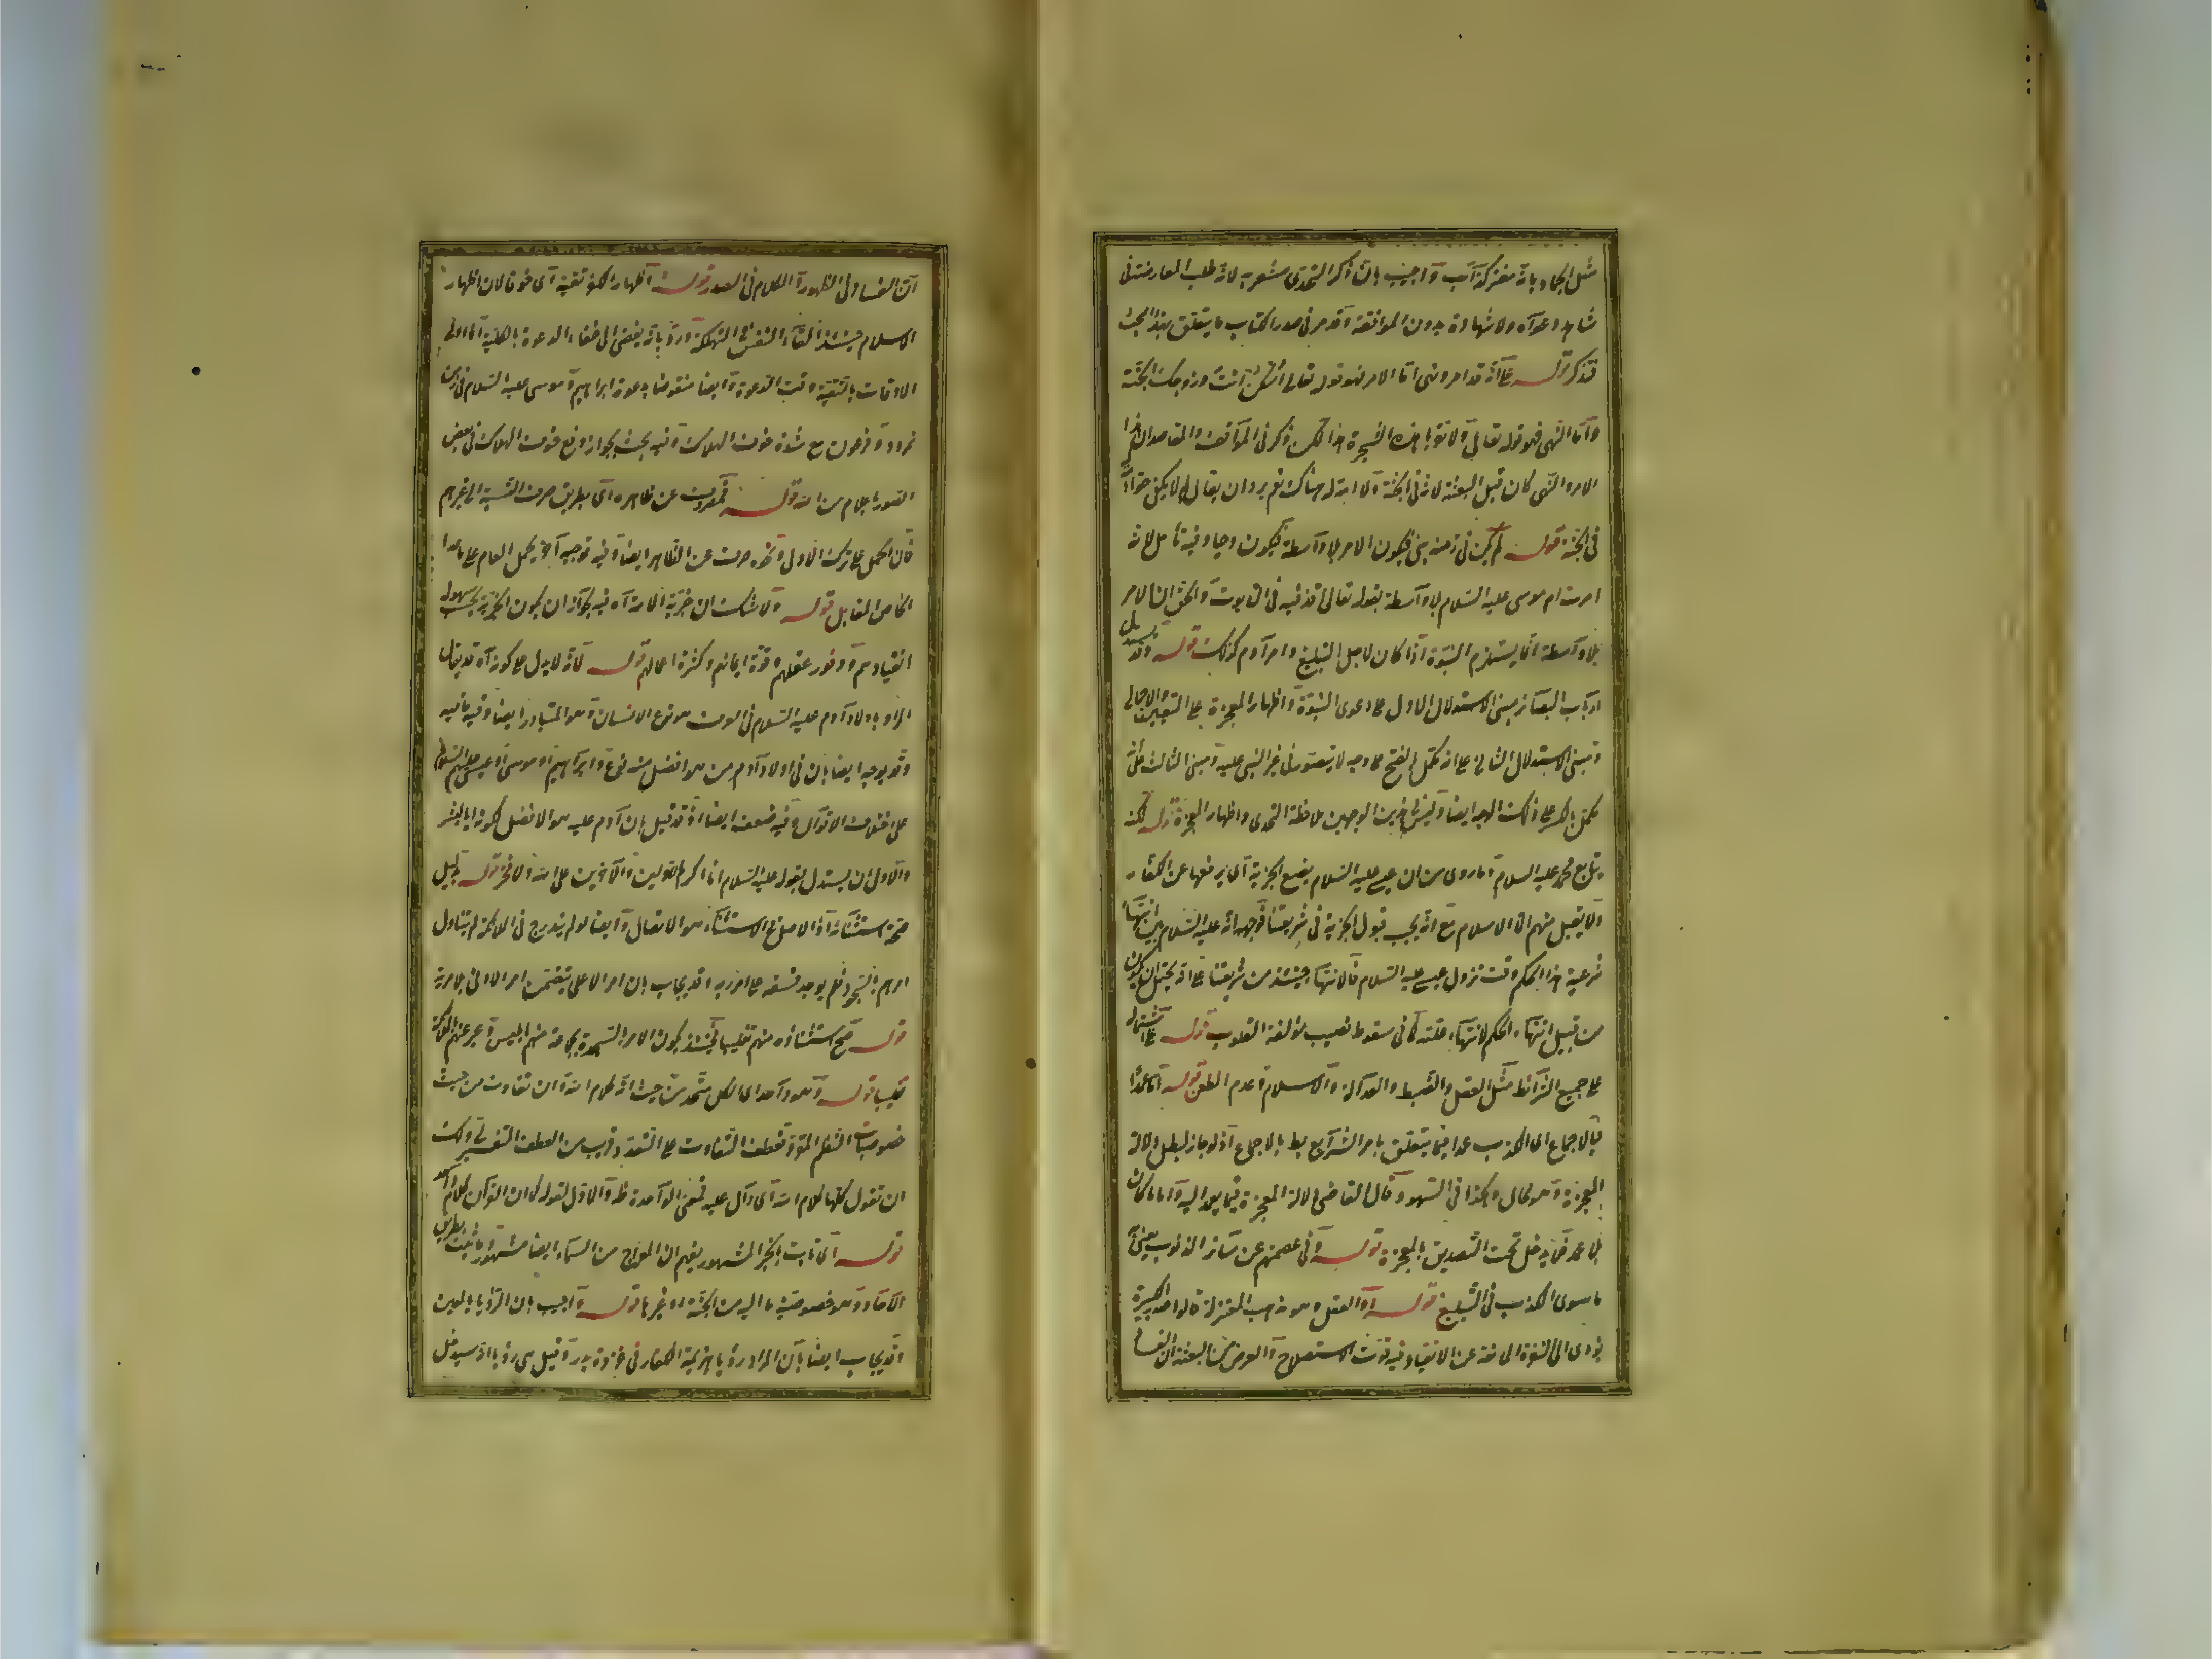 مثل الجماد بانه مفتر كذاب واجيب بان ذكر التحدى مشعر به لانه طلب المعارضة فى
شاهد دعواه ولا شهادة بدون الموافقة وقد مر فى صدر الكتاب ما يتعلق بهذا البحث
فتذكر قوله على انه قد امر ونهى اما الامر فهو قوله تعالى اسكن انت وزوجك الجنة
واما النهى فهو قوله تعالى ولا تقربا هذه الشجرة هذا لكن ذكر فى المواقف والمقاصد ان هذا
الامر والنهى كان قبل البعثة لانه فى الجنة ولا امة له هناك نعم يرد ان يقال لم لا يكفى حواء
فى الجنة قوله لم يكن فى زمنه نبى فيكون الامر بلا واسطة فيكون وحيا وفيه تأمل لانه
امرت ام موسى عليه السلام بلا واسطة بقوله تعالى اقذفيه فى التابوت والحق ان الامر
بلا واسطة انما يستلزم النبوة اذا كان لاجل التبليغ وامر آدم كذلك قوله وقد يستدل
ارباب البصائر مبنى الاستدلال الاول على دعوى النبوة واظهار المعجزة على التعيين والاجمالى
ومبنى الاستدلال الثانى على انه مكمل بالفتح على وجه لا يتصور فى غير النبى عليه ومبنى الثالث على انه
مكمل بالكسر على ذلك الوجه ايضا وليس فى هذين الوجهين ملاحظة التحدى واظهار المعجزة قوله لكنه
يتابع محمدا عليه السلام وما روى من ان عيسى عليه السلام يضع الجزية اى يرفعها عن الكفار
ولا يقبل منهم الا الاسلام مع انه يجب قبول الجزية فى شريعتنا فوجهه انه عليه السلام بين انتهاء
شرعية هذا الحكم وقت نزول عيسى عليه السلام فالانتهاء حينئذ من شريعتنا على انه يحتمل ان يكون
من قبيل انتهاء الحكم لانتهاء علته كما فى سقوط نصيب مؤلفة القلوب قوله على اشتماله
على جميع الشرائط مثل العقل والضبط والعدالة والاسلام وعدم الطعن قوله اما عمدا
فبالاجماع اى الكذب عمدا فيما يتعلق بامر الشرايع باطل بالاجماع اذ لو جاز لبطل دلالة
المعجزة وهو محال وهكذا فى السهو وقال القاضى دلالة المعجزة فيما يعمد اليه واما ما كان
بلا عمد فلا يدخل تحت التصديق بالمعجزة قوله وفى عصمتهم عن سائر الذنوب يعنى به
ما سوى الكذب فى التبليغ قوله او العقل وهو مذهب المعتزلة قالوا صدور الكبيرة
يؤدى الى النفرة المانعة عن الانقياد وفيه فوت الاستصلاح والغرض من البعثة ان الفساد
ان الفساد فى الظهور والكلام فى الصدور قوله اظهار الكفر تقية اى خوفا لان اظهار
الاسلام حينئذ القاء النفس فى التهلكة ورد بانه يفضى الى خفاء الدعوة بالكلية اذ اولى
الاوقات بالتقية وقت الدعوة وايضا منقوض بدعوة ابراهيم وموسى عليه السلام فى زمن
نمرود وفرعون مع شدة خوف الهلاك وفيه بحث لجواز دفع خوف الهلاك فى بعض
الصور باعلام من الله قوله فمصروف عن ظاهره اى بطريق صرف النسبة الى غيرهم
فان الحمل على ترك الاولى ونحوه صرف عن الظاهر ايضا وفيه توجيه آخر بحمل العام على ما عدا
الخاص المقابل قوله ولا شك ان خيرية الامة آه فيه لجواز ان يكون الخيرية بحسب سهولة
انقيادهم ووفور عقلهم وقوة ايمانهم وكثرة اعمالهم قوله لانه لا يدل على كونه آه قد يقال
المراد باولاد آدم عليه السلام فى العرف هو نوع الانسان وهو المتبادر ايضا وفيه ما فيه
وقد يوجه ايضا بان فى اولاد آدم من هو افضل منه كنوح وابراهيم او موسى او عيسى عليهم السلام
على اختلاف الاقوال وفيه ضعف ايضا اذ قد قيل بان آدم عليه هو الافضل لكونه ابا البشر
والاولى ان يستدل بقوله عليه السلام انا اكرم الاولين والآخرين على الله ولا فخر قوله بدليل
صحة استثنائه اذ الاصل فى الاستثناء هو الاتصال وايضا لو لم يندرج فى الملائكة لم يتناول
امرهم بالسجود فلم يوجد فسقه عن امر ربه وقد يجاب بان امر الاعلى يتضمن امر الادنى بلا مرية
قوله صح استثناؤه منهم تغليبا فحينئذ يكون الامر بالسجدة لجماعة منهم ابليس وعبر عنهم بالملائكة
تغليبا قوله وهو واحد اى الكل متحد من حيث انه كلام الله وان تفاوت من حيث
خصوصيات النظم المقروء فعطف التفاوت على التعدد قريب من العطف التفسيرى ولك
ان تقول كلها كلام الله اى دال عليه فمعنى الوحدة ظاهر والاول لقوله كما ان القرآن كلام واحد
قوله اى ثابت بالخبر المشهور يفهم ان المعراج من السماء ايضا مشهور وما ثبت بطريق
الآحاد هو خصوصية ما اليه من الجنة او غيرها قوله واجيب بان المراد الرؤيا بالعين
وقد يجاب ايضا بان المراد رؤيا هزيمة الكفار فى غزوة بدر وقيل هى رؤيا انه سيدخل